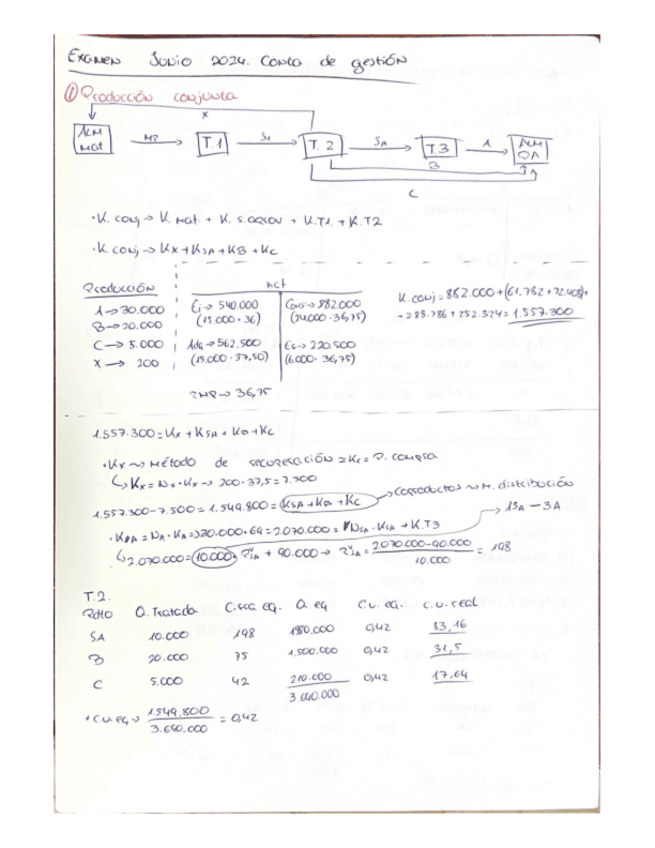 Examen Junio 2024. Conta de gestión
① Producción conjunta
X
ALM MAT MP T.1 S1 T.2 SA T.3 A ALM
B
C
· K. conj → K. mat. + K. + K.T1 + K.T2
· K. conj → Kx + KSA + KB + Kc
Producción
A → 30.000
B → 20.000
C → 5.000
X → 200
Ei → 540.000
(15.000 · 36)
Adq → 562.500
(15.000 · 37,50)
Cons → 882.000
(24.000 · 36,75)
Ef → 220.500
(6.000 · 36,75)
PMP → 36,75
K. conj = 882.000 + (61.782 + 72.408) +
+ 288.786 + 252.324 = 1.557.300
1.557.300 = Kx + KSA + KB + KC
· Kx ~> Método de recuperación = Kx = P. compra
↳ Kx = Nx · Kx → 200 · 37,5 = 7.500
1.557.300 - 7.500 = 1.549.800 = KSA + KB + KC → Coproductos ~> M. distribución
1SA - 3A
= 2.070.000 = NSA · KSA + K.T3
↳ 2.070.000 = 10.000 · + 90.000 → = 2070.000-90.000 / 10.000 = 198
T.2.
Pdto Q. Tratada Q. eq C.u. eq. c.u. real
SA 10.000 198 1980.000 0,42 83,16
B 20.000 75 1.500.000 0,42 31,5
C 5.000 42 210.000 0,42 17,64
3.690.000
· c.u. eq → 1.549.800 / 3.690.000 = 0,42